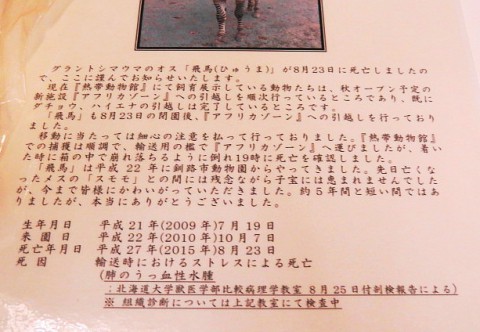 グラントシマウマのオス「飛馬(ひゅうま)」が8月23日に死亡しましたの
で、ここに謹んでお知らせいたします。
現在『熱帯動物館』にて飼育展示している動物たちは、秋オープン予定の
新施設『アフリカゾーン』への引越しを順次行っているところであり、既に
ダチョウ、ハイエナの引越しは完了しているところです。
「飛馬」も8月23日の閉園後、『アフリカゾーン』への引越しを行っており
ました。
移動に当たっては細心の注意を払って行っておりました。『熱帯動物館』
での捕獲は順調で、輸送用の檻で『アフリカゾーン』へ運びましたが、着い
た時に箱の中で崩れ落ちるように倒れ19時に死亡を確認しました。
「飛馬」は平成 22 年に釧路市動物園からやってきました。先日亡くな
ったメスの「スモモ」との間には残念ながら子宝には恵まれませんでした
が、今まで皆様にかわいがっていただきました。約5年間と短い間ではあ
りましたが、本当にありがとうございました。
生年月日 平成 21 年(2009 年)7 月 19 日
来園日 平成 22 年(2010 年)10 月 7 日
死亡年月日 平成 27 年(2015 年)8 月 23 日
死因 輸送時におけるストレスによる死亡
(肺のうっ血性水腫
:北海道大学獣医学部比較病理学教室 8 月 25 日付剖検報告による)
※ 組織診断については上記教室にて検査中